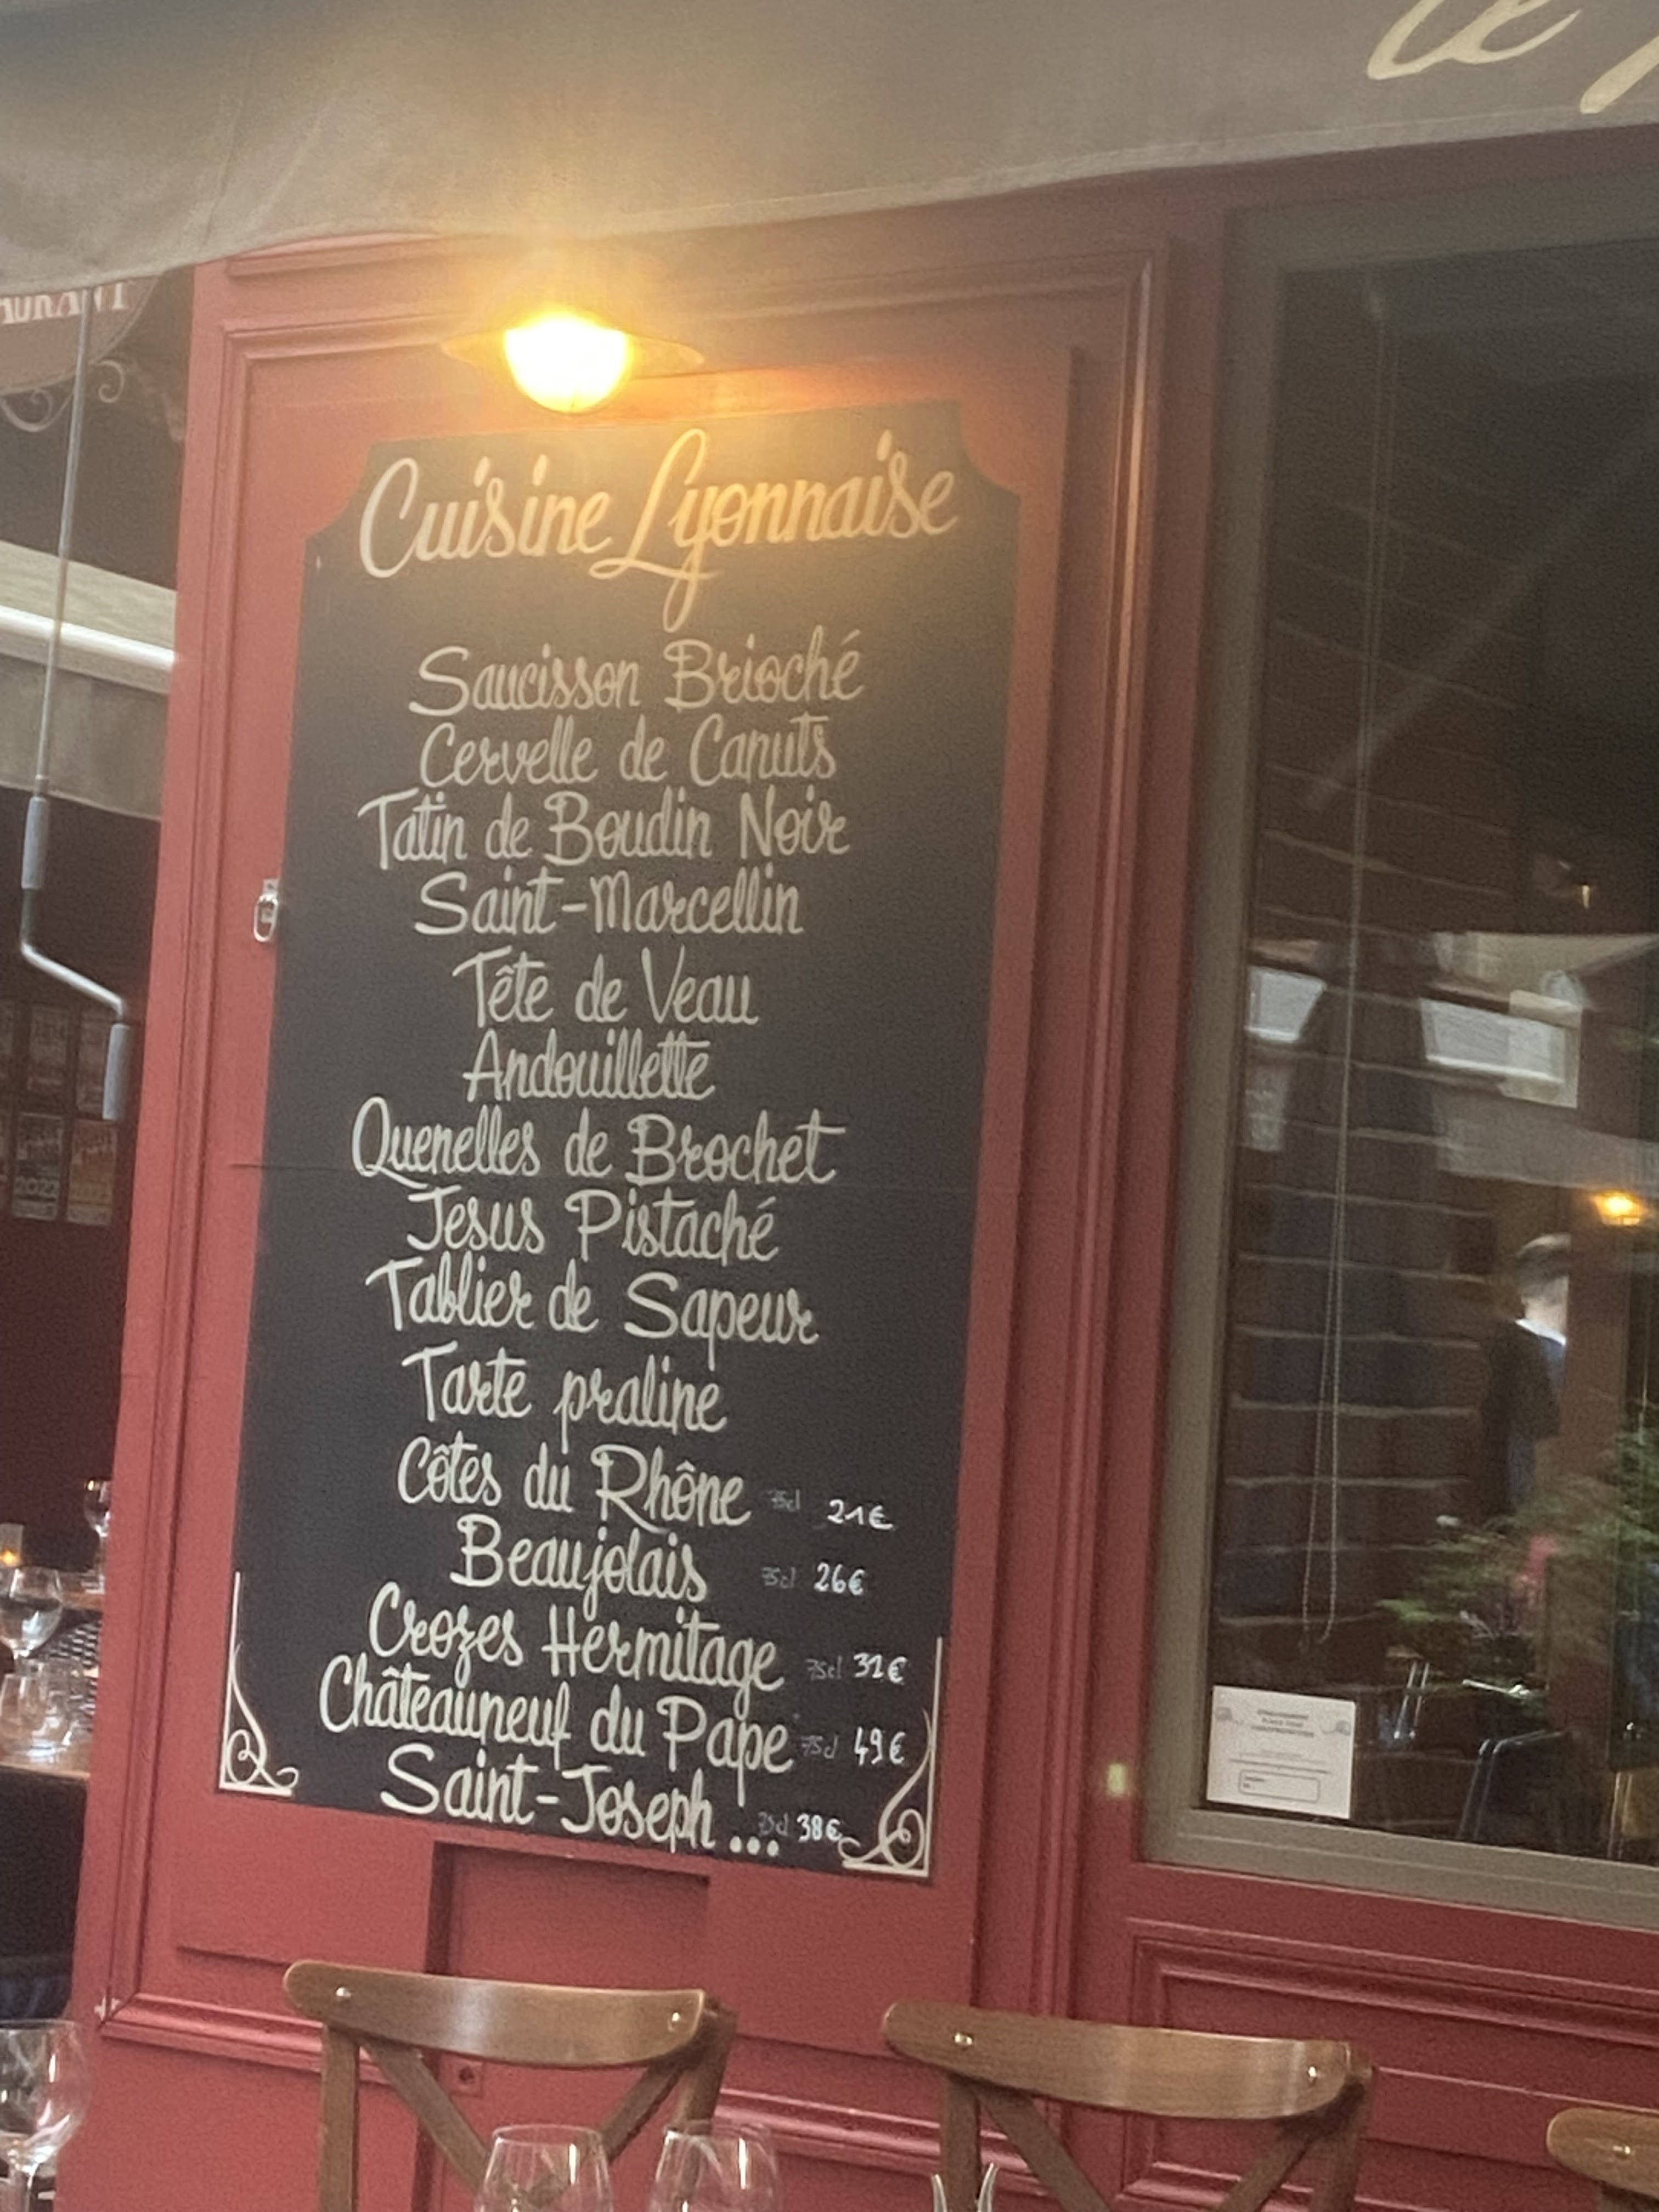 Le
AURANT
Cuisine Lyonnaise
Saucisson Brioché
Cervelle de Canuts
Tatin de Boudin Noir
Saint-Marcellin
Tête de Veau
Andouillette
Quenelles de Brochet
Jesus Pistaché
Tablier de Sapeur
Tarte praline
Côtes du Rhône 75cl 21€
Beaujolais 75cl 26€
Crozes Hermitage 75cl 31€
Châteauneuf du Pape 75cl 49€
Saint-Joseph ... 75cl 38€
2022